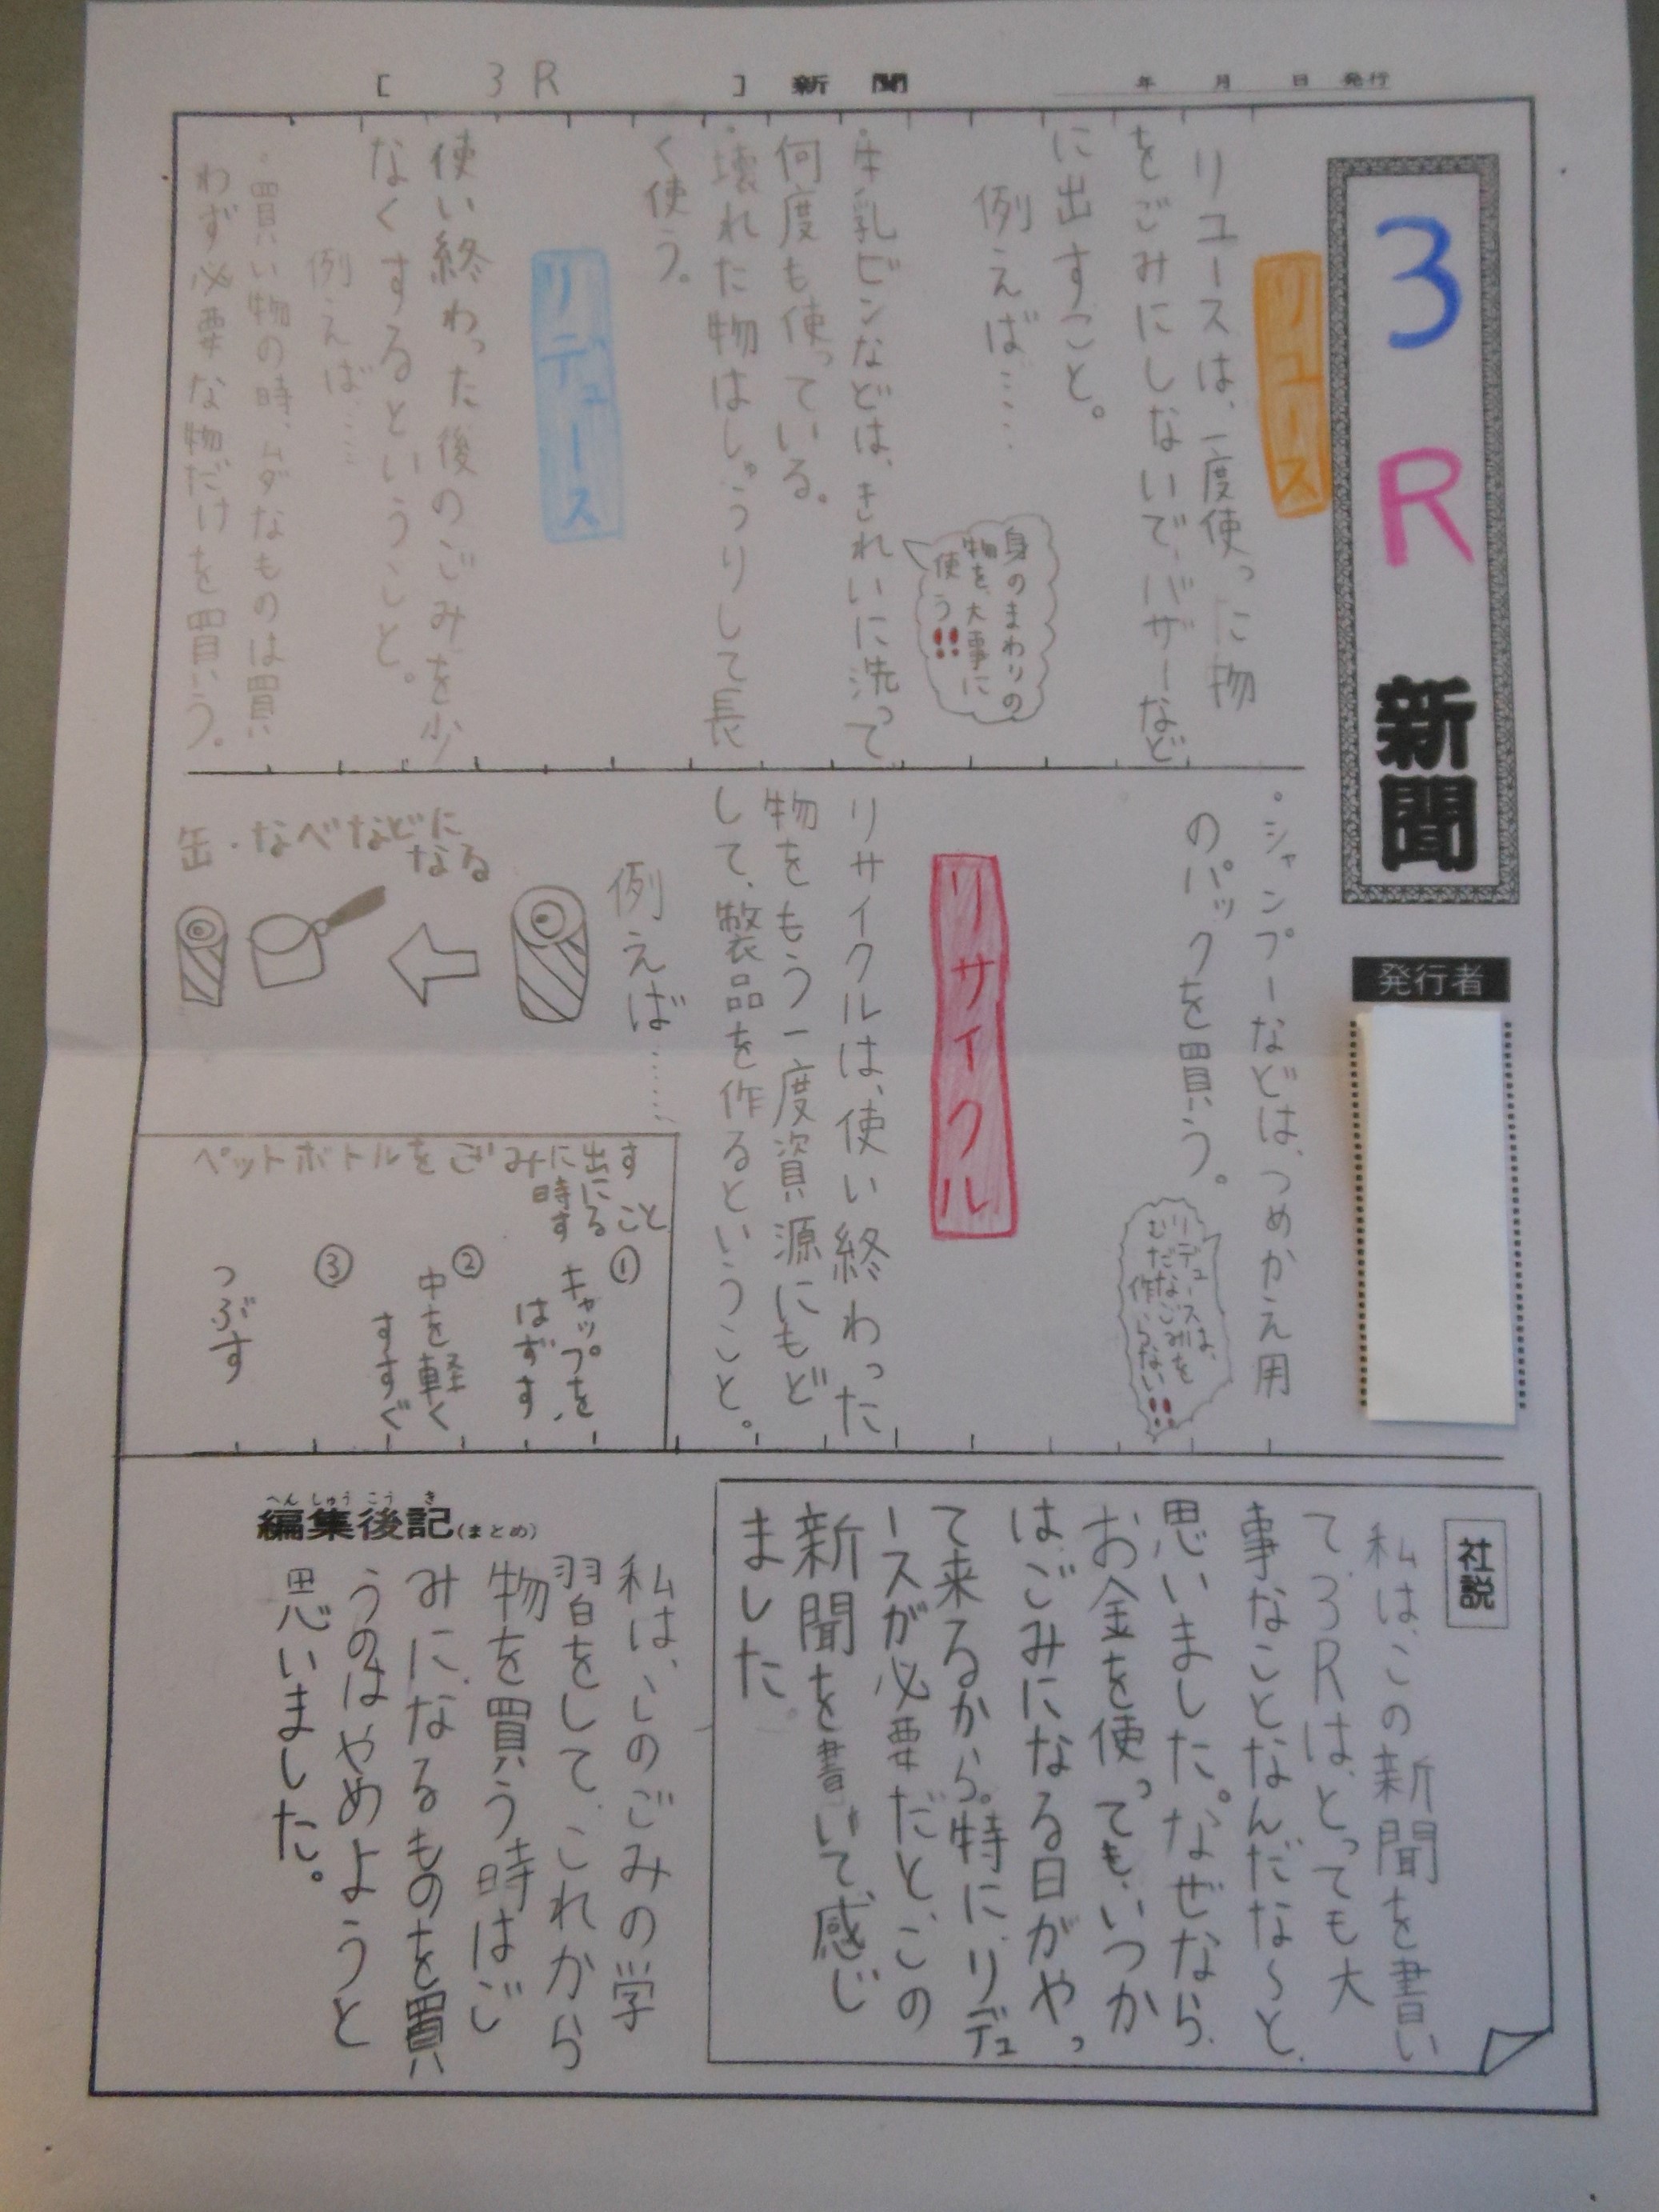 [ 3R ] 新聞
年 月 日 発行
3R新聞
発行者
リユース
リユースは、一度使った物
をごみにしないで、バザーなど
に出すこと。
例えば……
身のまわりの
物を、大事に
使う!!
・牛乳ビンなどは、きれいに洗って
何度も使っている。
・壊れた物はしゅうりして長
く使う。
リデュース
使い終わった後のごみを少
なくするということ。
例えば……
・買い物の時、ムダなものは買
わず必要な物だけを買う。
・シャンプーなどは、つめかえ用
のパックを買う。
リデュースは、
むだなごみを
作らない!!
リサイクル
リサイクルは、使い終わった
物をもう一度資源にもど
して、製品を作るということ。
例えば……
缶・なべなどに
なる
ペットボトルをごみに出す
時にすること
①キャップを、
はずす
②中を軽く
すすぐ
③つぶす
社説
私は、この新聞を書い
て、3Rは、とっても大
事なことなんだな～と、
思いました。なぜなら、
お金を使っても、いつか
は、ごみになる日がやっ
て来るから。特に、リデュ
ースが必要だと、この
新聞を書いて、感じ
ました。
編集後記(まとめ)
へんしゅうこうき
私は、このごみの学
習をして、これから
物を買う時は、ご
みに、なるものを買
うのはやめようと
思いました。